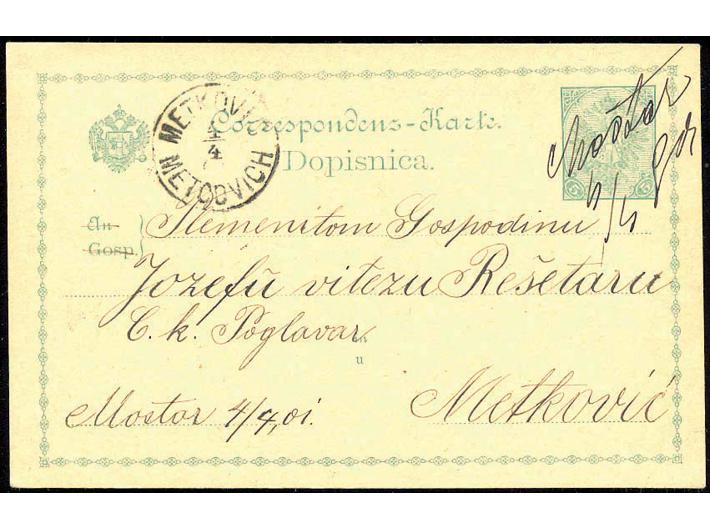 METKOVIĆ
4
4
METCOVICH
Correspondenz-Karte.
Dopisnica.
Mostar
4/4 901
5
5
An
Gosp.
Plemenitom Gospodinu
Jozefu vitezu Rešetaru
C. k. Poglavar
in
u
Mostar 4/4, 01.
Metković